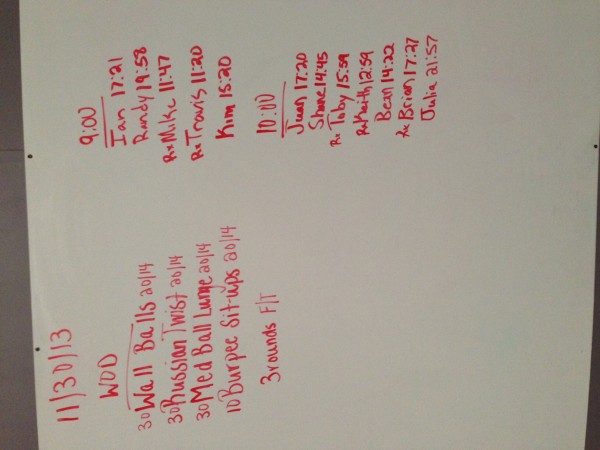 11/30/13
WOD
30 Wall Balls 20/14
30 Russian Twist 20/14
30 Med Ball Lunge 20/14
10 Burpee Sit-ups 20/14
3 rounds F/T
9:00
Ian 17:21
Randy 19:58
Rx Mike 11:47
Rx Travis 11:20
Kim 15:20
10:00
Juan 17:20
Shane 14:45
Rx Toby 15:59
Rx Keith 12:59
Ben 14:22
Rx Brian 17:27
Julia 21:57